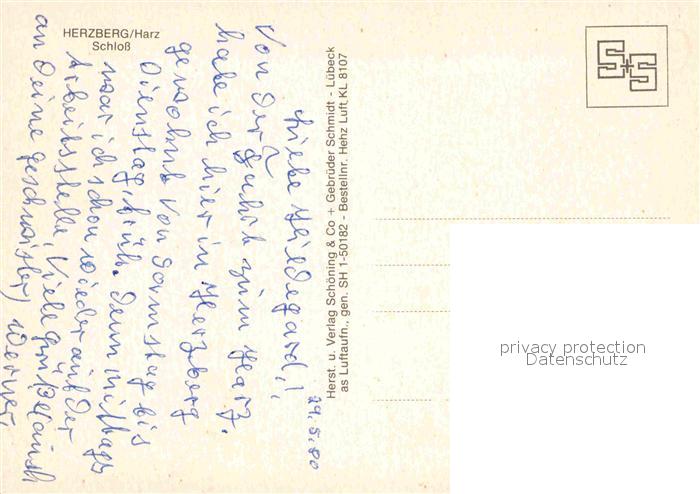 HERZBERG/Harz
Schloß
29.5.80
Liebe Hildegard!
Von der Fahrt zum Harz.
habe ich hier in Herzberg
gewohnt von Samstag bis
Dienstag früh. Denn mittags
war ich schon wieder auf der
Arbeitsstelle. Viele Grüße auch
an Deine Geschwister, Werner.
Herst. u. Verlag Schöning & Co + Gebrüder Schmidt - Lübeck
as Luftaufn., gen. SH 1-50182 - Bestellnr. Hehz Luft KL 8107
S+S
privacy protection
Datenschutz